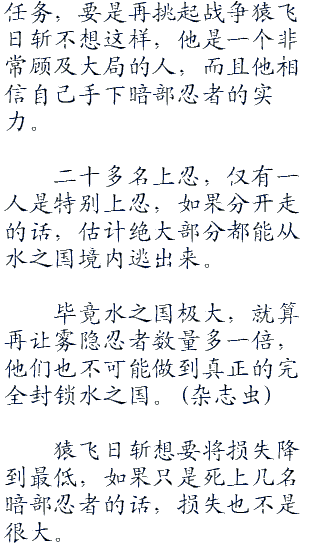 任务，要是再挑起战争猿飞
日斩不想这样，他是一个非
常顾及大局的人，而且他相
信自己手下暗部忍者的实
力。
二十多名上忍，仅有一
人是特别上忍，如果分开走
的话，估计绝大部分都能从
水之国境内逃出来。
毕竟水之国极大，就算
再让雾隐忍者数量多一倍，
他们也不可能做到真正的完
全封锁水之国。(杂志虫)
猿飞日斩想要将损失降
到最低，如果只是死上几名
暗部忍者的话，损失也不是
很大。